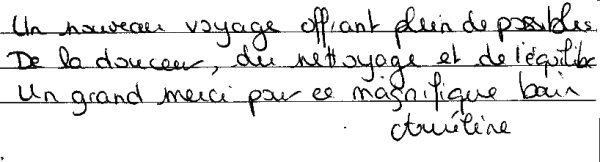 Un nouveau voyage offrant plein de possibles
De la douceur, du nettoyage et de l'équilibre
Un grand merci pour ce magnifique bain
Amélène